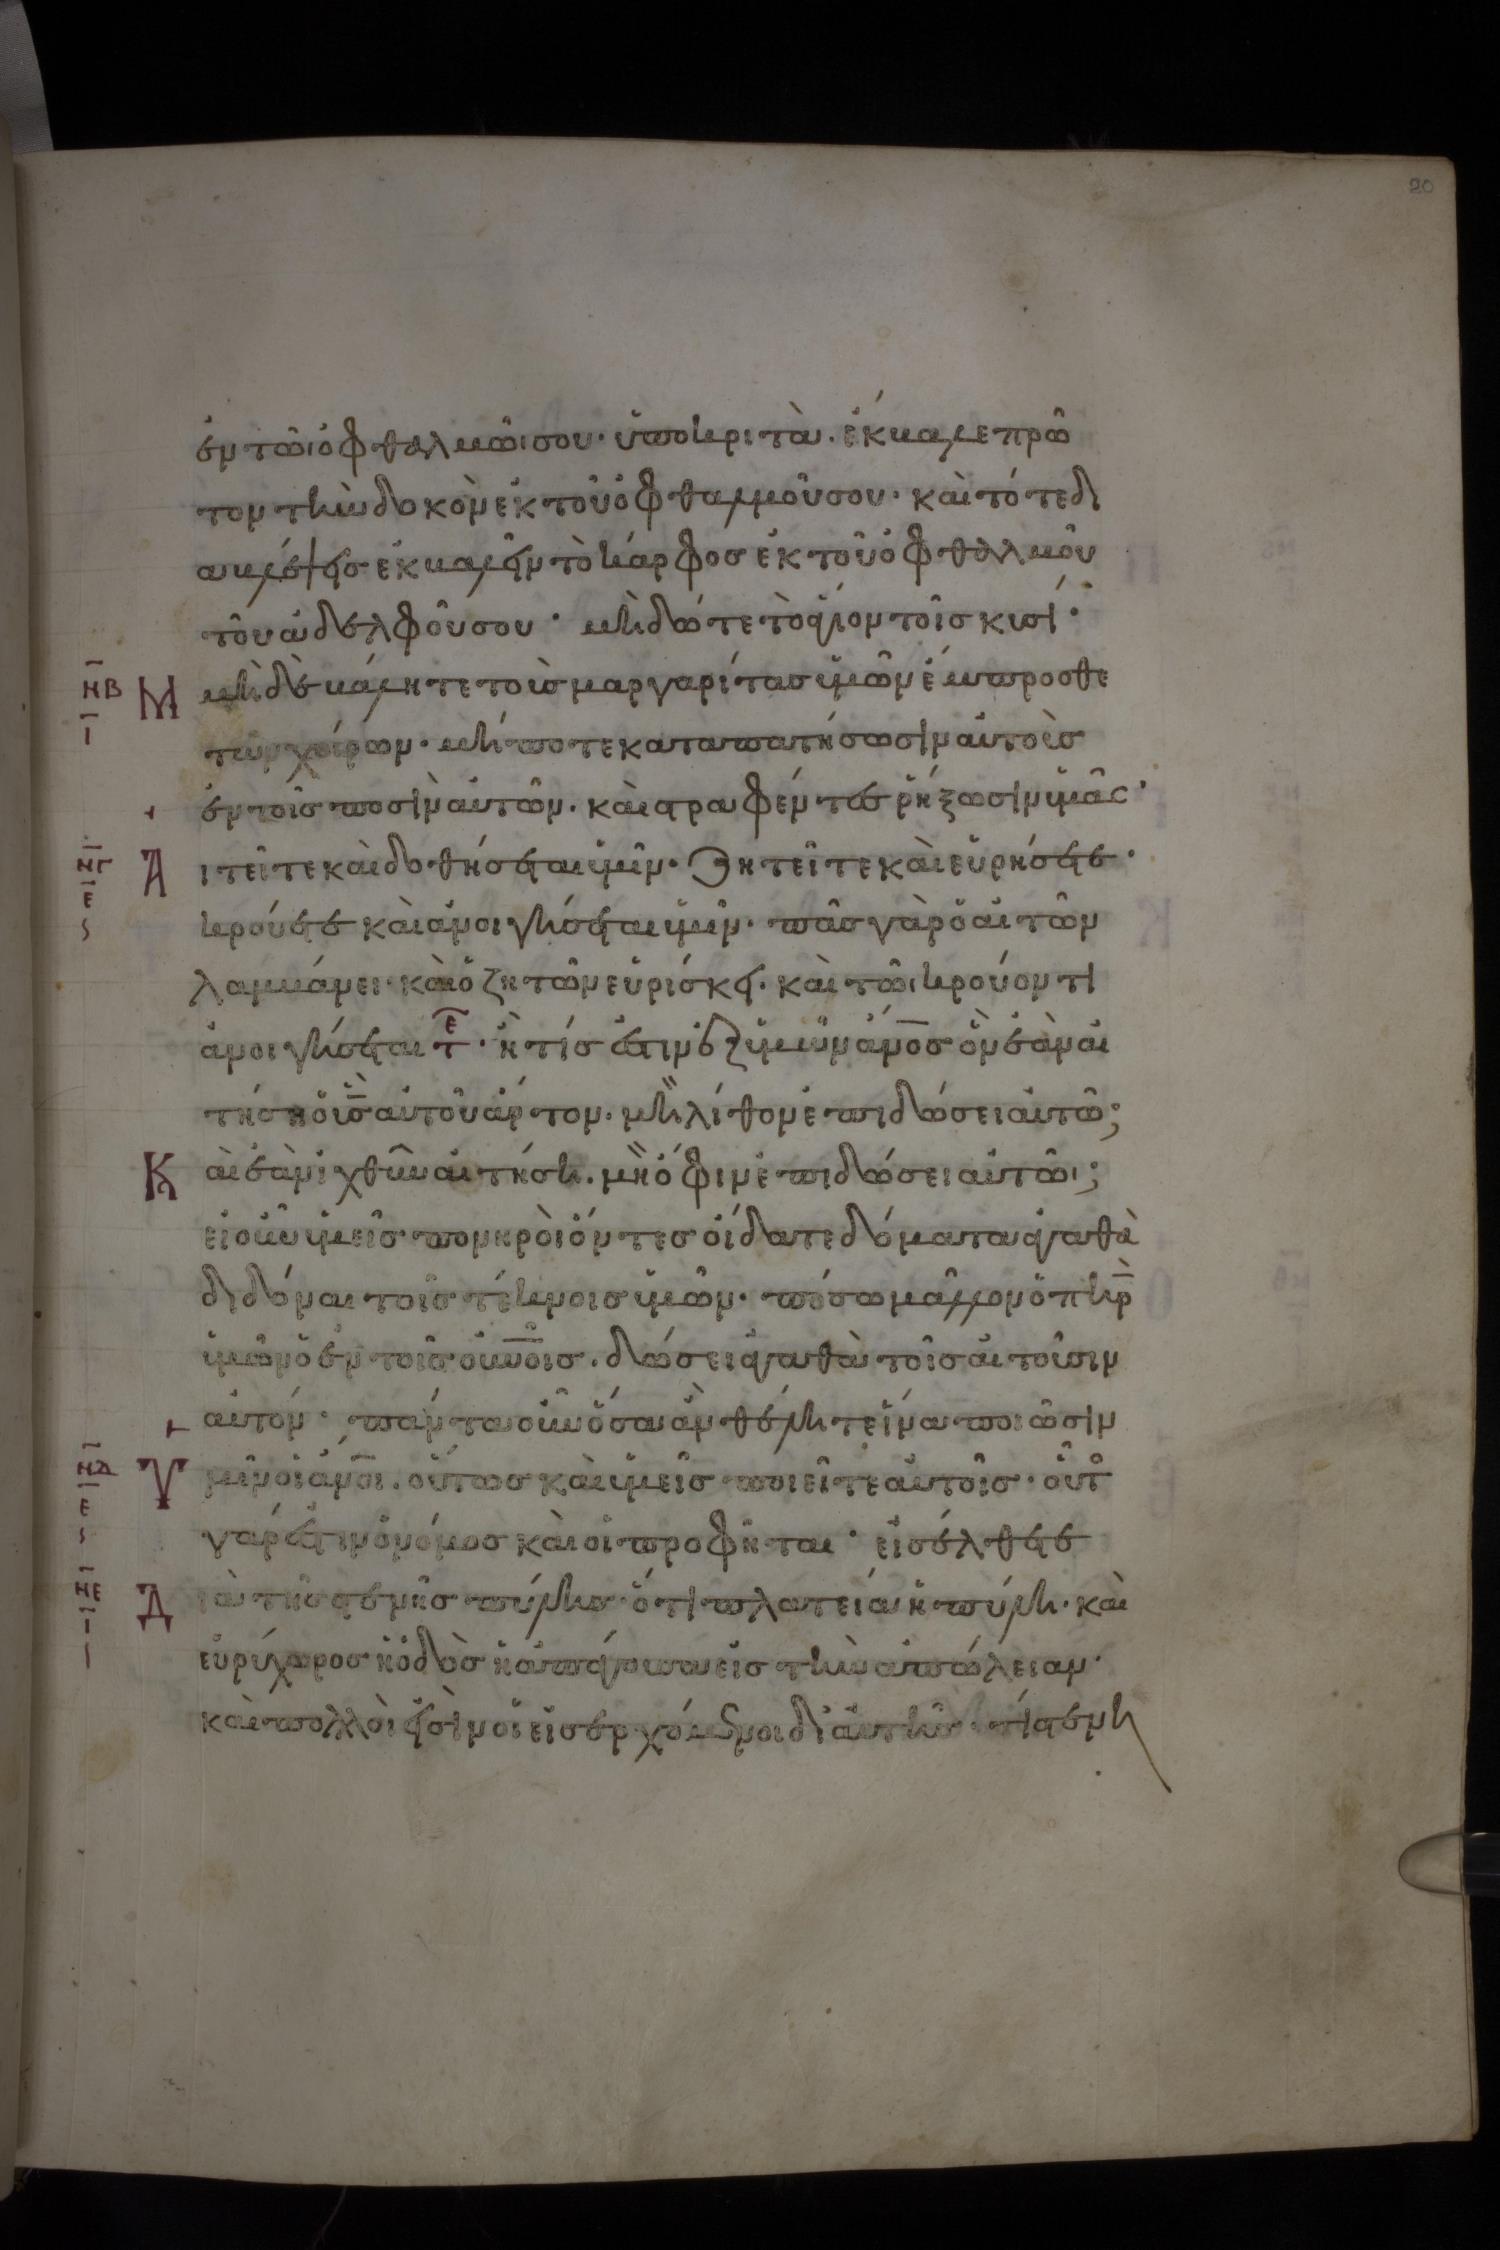 20
ἐν τῶι ὀφθαλμῶι σου· ὑποκριτὰ· ἔκβαλε πρῶ
τον τὴν δοκὸν ἐκ τοῦ ὀφθαλμοῦ σου· καὶ τότε δι
αβλέψεις ἐκβαλεῖν τὸ κάρφος ἐκ τοῦ ὀφθαλμοῦ
τοῦ ἀδελφοῦ σου· μὴ δῶτε τὸ ἅγιον τοῖς κυσί·
ΝΒ Ι Μ μὴ δὲ βάλητε τοὺς μαργαρίτας ὑμῶν ἔμπροσθε
τῶν χοίρων· μήποτε καταπατήσωσιν αὐτοὺς
ἐν τοῖς ποσὶν αὐτῶν· καὶ στραφέντες ῥήξωσιν ὑμᾶς·
ΝΓ Ε Α ιτεῖτε καὶ δοθήσεται ὑμῖν· ζητεῖτε καὶ εὑρήσετε·
κρούετε καὶ ἀνοιγήσεται ὑμῖν· πᾶς γὰρ ὁ αἰτῶν
λαμβάνει· καὶ ὁ ζητῶν εὑρίσκει· καὶ τῶι κρούοντι
ἀνοιγήσεται τε· ἢ τίς ἐστιν ἐξ ὑμῶν ἄνος ὃν ἐὰν αἰ
τήσῃ ὁ υἱὸς αὐτοῦ ἄρτον· μὴ λίθον ἐπιδώσει αὐτῶ;
Κ αὶ ἐὰν ἰχθὺν αἰτήσῃ· μὴ ὄφιν ἐπιδώσει αὐτῶι;
εἰ οὖν ὑμεῖς πονηροὶ ὄντες οἴδατε δόματα ἀγαθὰ
διδόναι τοῖς τέκνοις ὑμῶν· πόσω μᾶλλον ὁ πηρ
ὑμῶν ὁ ἐν τοῖς οὐνοῖς· δώσει ἀγαθὰ τοῖς αἰτοῦσιν
αὐτόν· πάντα οὖν ὅσα ἂν θέλητε ἵνα ποιῶσιν
ΝΔ Ε Υ μῖν οἱ ἄνοι· οὕτως καὶ ὑμεῖς ποιεῖτε αὐτοῖς· οὗτ
γάρ ἐστιν ὁ νόμος καὶ οἱ προφῆται· εἰσέλθετε
ΝΕ Ι Δ ιὰ τῆς στενῆς πύλης· ὅτι πλατεῖα ἡ πύλη· καὶ
εὐρύχωρος ἡ ὁδὸς ἡ ἀπάγουσα εἰς τὴν ἀπώλειαν·
καὶ πολλοὶ εἰσὶν οἱ εἰσερχόμενοι δι' αὐτῆς· τί στενὴ